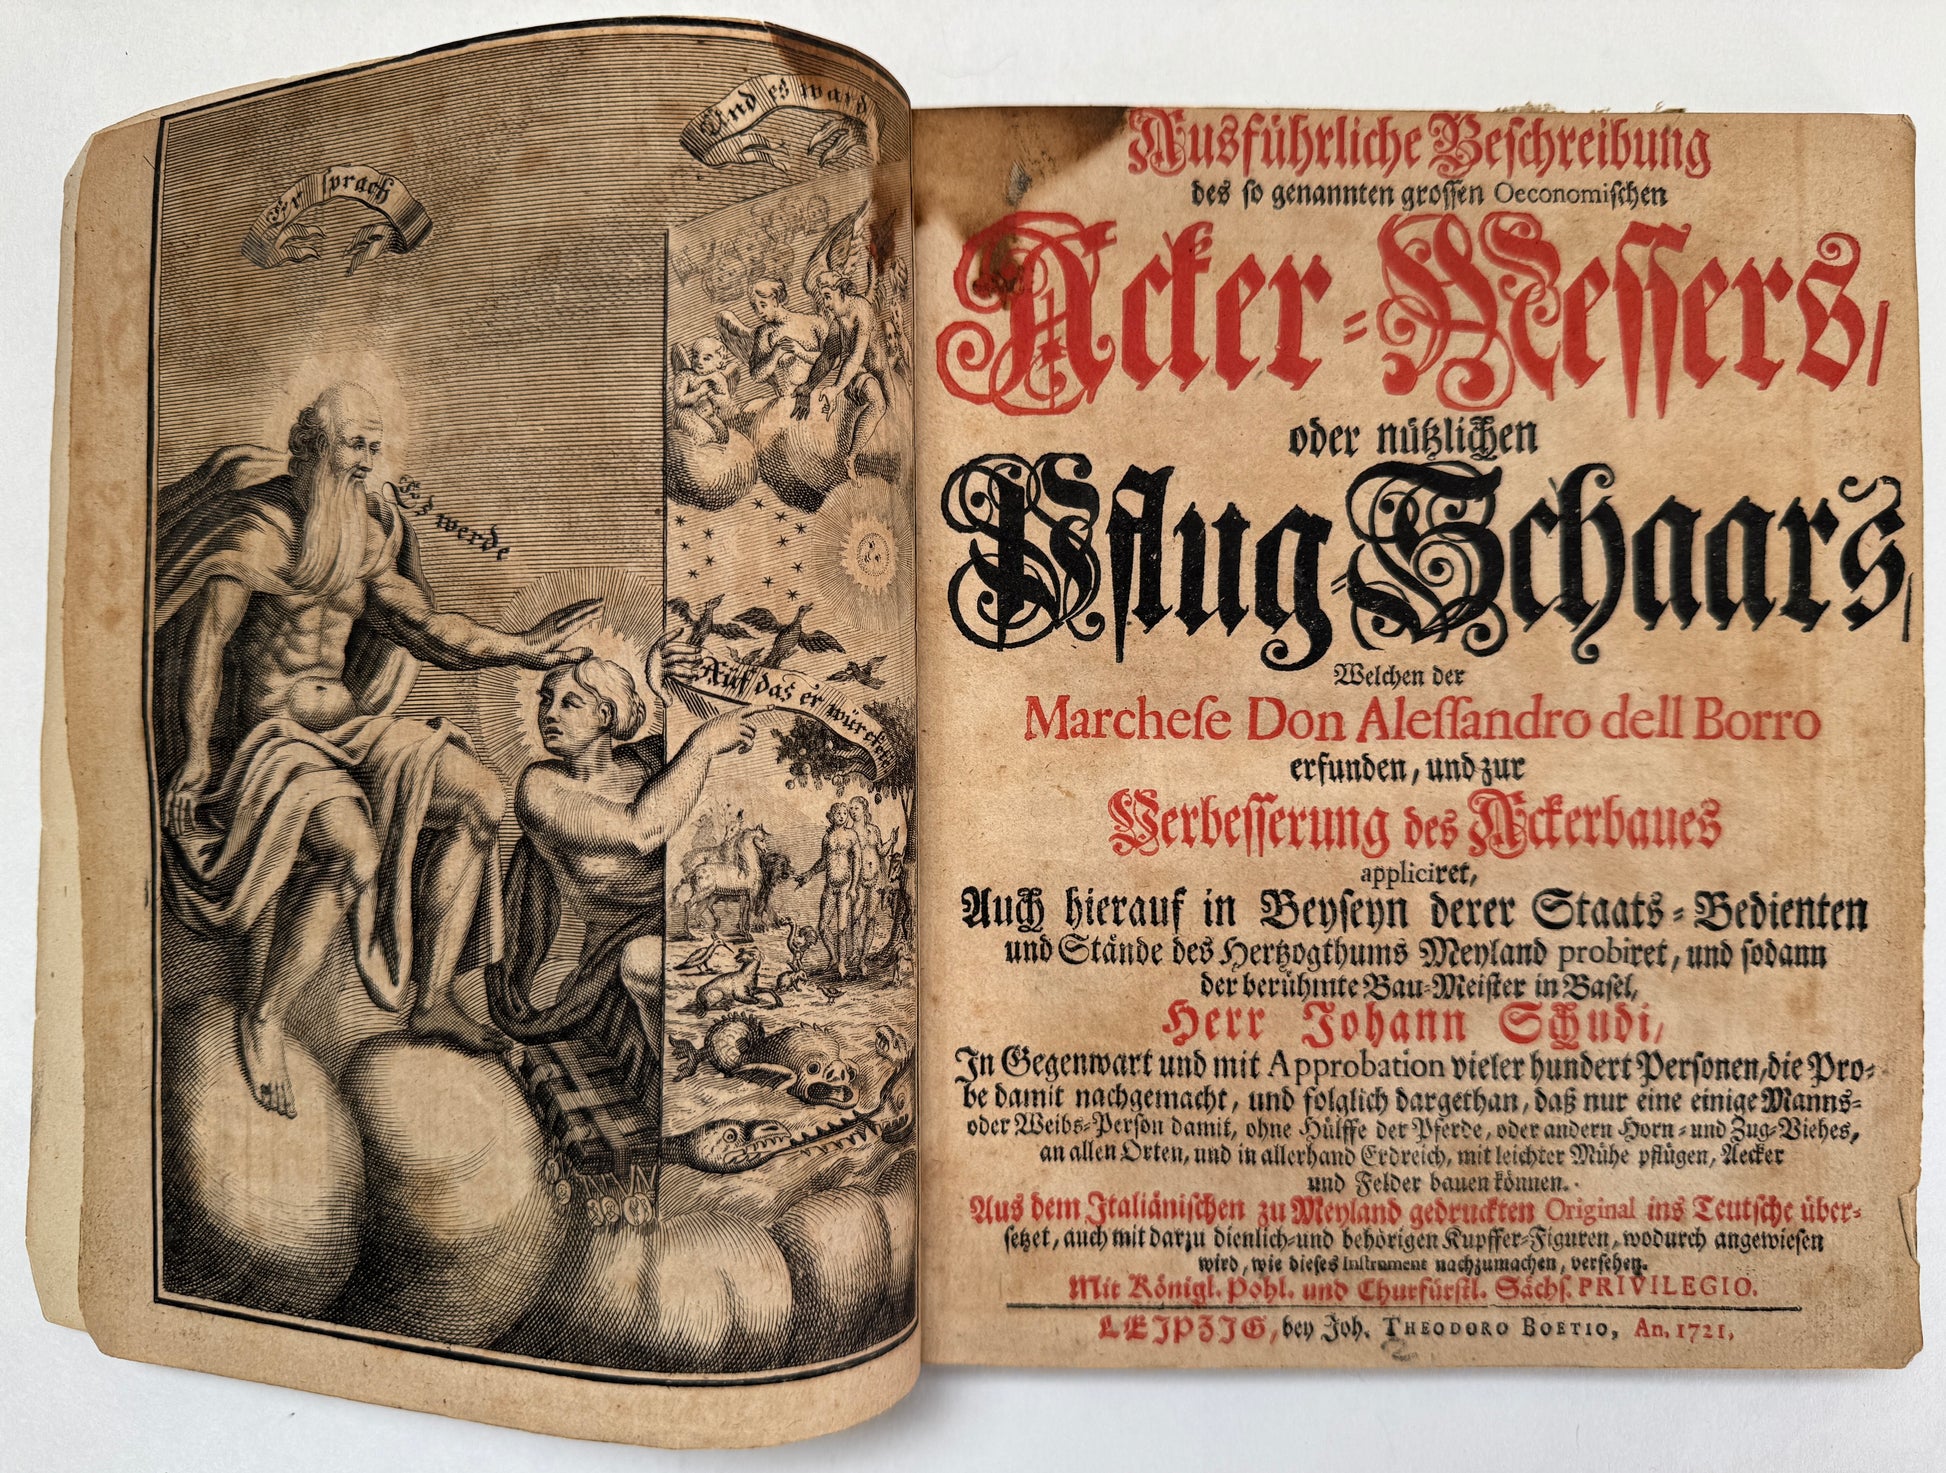 Er sprach
Und es ward
Es werde
Auf das er würcket
Ausführliche Beschreibung
des so genannten grossen Oeconomischen
Acker-Messers,
oder nützlichen
Pflug-Schaars,
Welchen der
Marchese Don Alessandro dell Borro
erfunden, und zur
Verbesserung des Ackerbaues
appliciret,
Auch hierauf in Beyseyn derer Staats-Bedienten
und Stände des Hertzogthums Meyland probiret, und sodann
der berühmte Bau-Meister in Basel,
Herr Johann Schudi,
In Gegenwart und mit Approbation vieler hundert Personen, die Pro-
be damit nachgemacht, und folglich dargethan, daß nur eine einige Manns-
oder Weibs-Person damit, ohne Hülffe der Pferde, oder andern Horn- und Zug-Viehes,
an allen Orten, und in allerhand Erdreich, mit leichter Mühe pflügen, Aecker
und Felder bauen können.
Aus dem Italiänischen zu Meyland gedruckten Original ins Teutsche über-
setzet, auch mit darzu dienlich- und behörigen Kupffer-Figuren, wodurch angewiesen
wird, wie dieses Instrument nachzumachen, versehen.
Mit Königl. Pohl. und Churfürstl. Sächs. PRIVILEGIO.
LEIPZIG, bey Joh. THEODORO BOETIO, An. 1721.